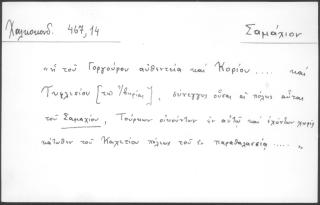 Χαλκοκονδ. 467,14
Σαμάχιον
"ἡ τοῦ Γοργούρου αὐθεντεία καὶ Κορίου .... καὶ
Τυφλισίου [τῶν Ἰβηρίας], σύνεγγυς οὖσαι αἱ πόλεις αὗται
τοῦ Σαμαχίου, Τούρκων οἰκούντων ἐν αὐτῷ καὶ ἐχόντων χωρὶς
κάτωθεν τοῦ Καχετίου πόλεως τοῦ ἐν παραθαλασσίᾳ ..... "